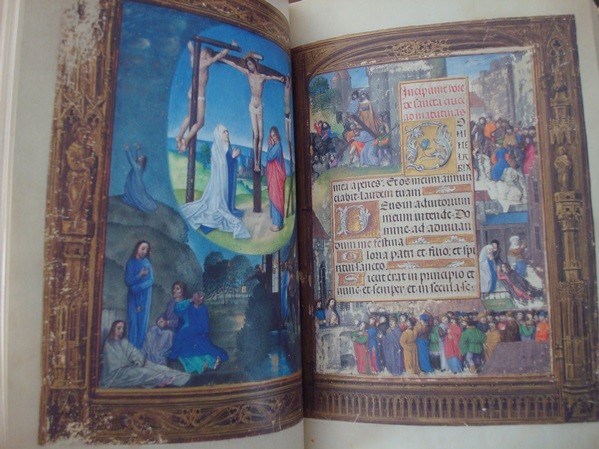 Incipiunt hore
de sancta cruce
ad matutinas
D
mea aperies. Et os meum annun
ciabit laudem tuam.
Deus in adiutorium
meum intende. Do
mine ad adiuvan
dum me festina
Gloria patri et filio, et spi
ritui sancto.
Sicut erat in principio et
nunc et semper et in secula se